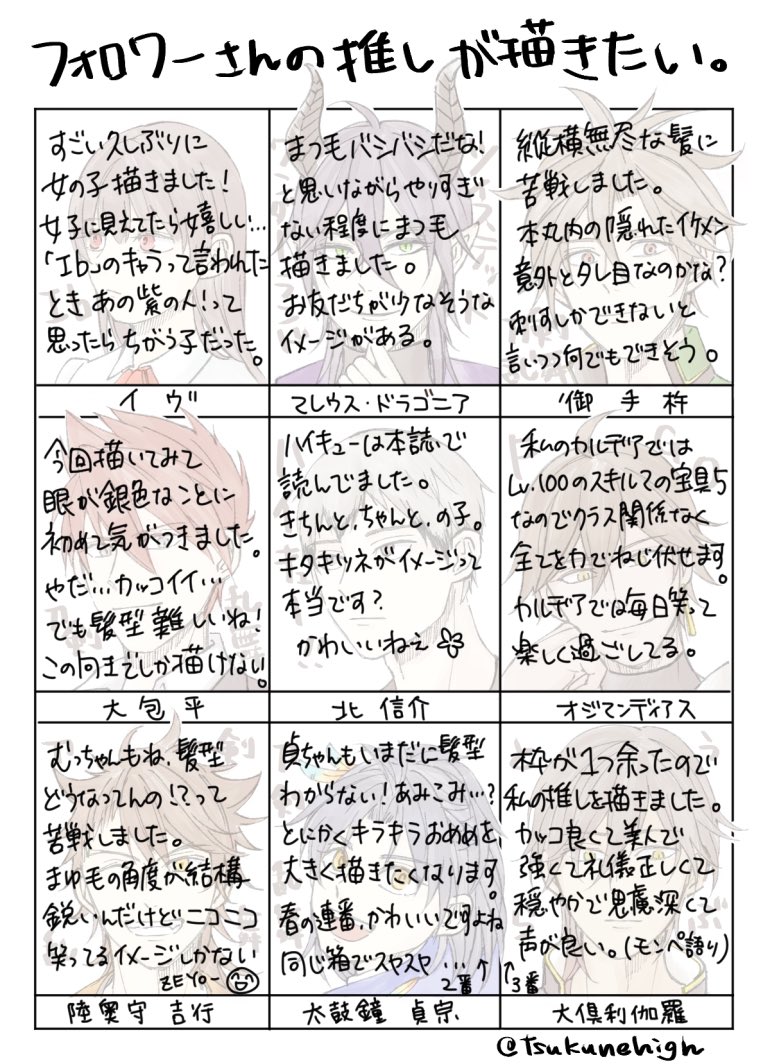 フォロワーさんの推しが描きたい。
すごい久しぶりに
女の子描きました!
女子に見えてたら嬉しい…
「Ib」のキャラって言われた
とき あの紫の人!って
思ったらちがう子だった。
イヴ
まつ毛バシバシだな!
と思いながらやりすぎ
ない程度にまつ毛
描きました。
お友だちが少なそうな
イメージがある。
マレウス・ドラゴニア
縦横無尽な髪に
苦戦しました。
本丸内の隠れたイケメン
意外とタレ目なのかな?
刺すしかできないと
言いつつ何でもできそう。
御手杵
今回描いてみて
眼が銀色なことに
初めて気がつきました。
やだ…カッコイイ…
でも髪型難しいね!
この向きでしか描けない。
大包平
ハイキューは本誌で
読んでました。
きちんと、ちゃんと、の子。
キタキツネがイメージって
本当です?
かわいいねえ
北 信介
私のカルデアでは
Lv.100のスキルマの宝具5
なのでクラス関係なく
全てを力でねじ伏せます。
カルデアでは毎日笑って
楽しく過ごしてる。
オジマンディアス
むっちゃんもね、髪型
どうなってんの!?って
苦戦しました。
まゆ毛の角度が結構
鋭いんだけどニコニコ
笑ってるイメージしかない
ZEYO〜
陸奥守 吉行
貞ちゃんもいまだに髪型
わからない!あみこみ…?
とにかくキラキラおめめを
大きく描きたくなります。
春の連番、かわいいですよね
同じ箱でスヤスヤ…↑
2番
太鼓鐘 貞宗
枠が1つ余ったので
私の推しを描きました。
カッコ良くて美人で
強くて礼儀正しくて
穏やかで思慮深くて
声が良い。(モンペ語り)
↑3番
大倶利伽羅
@tsukunehigh